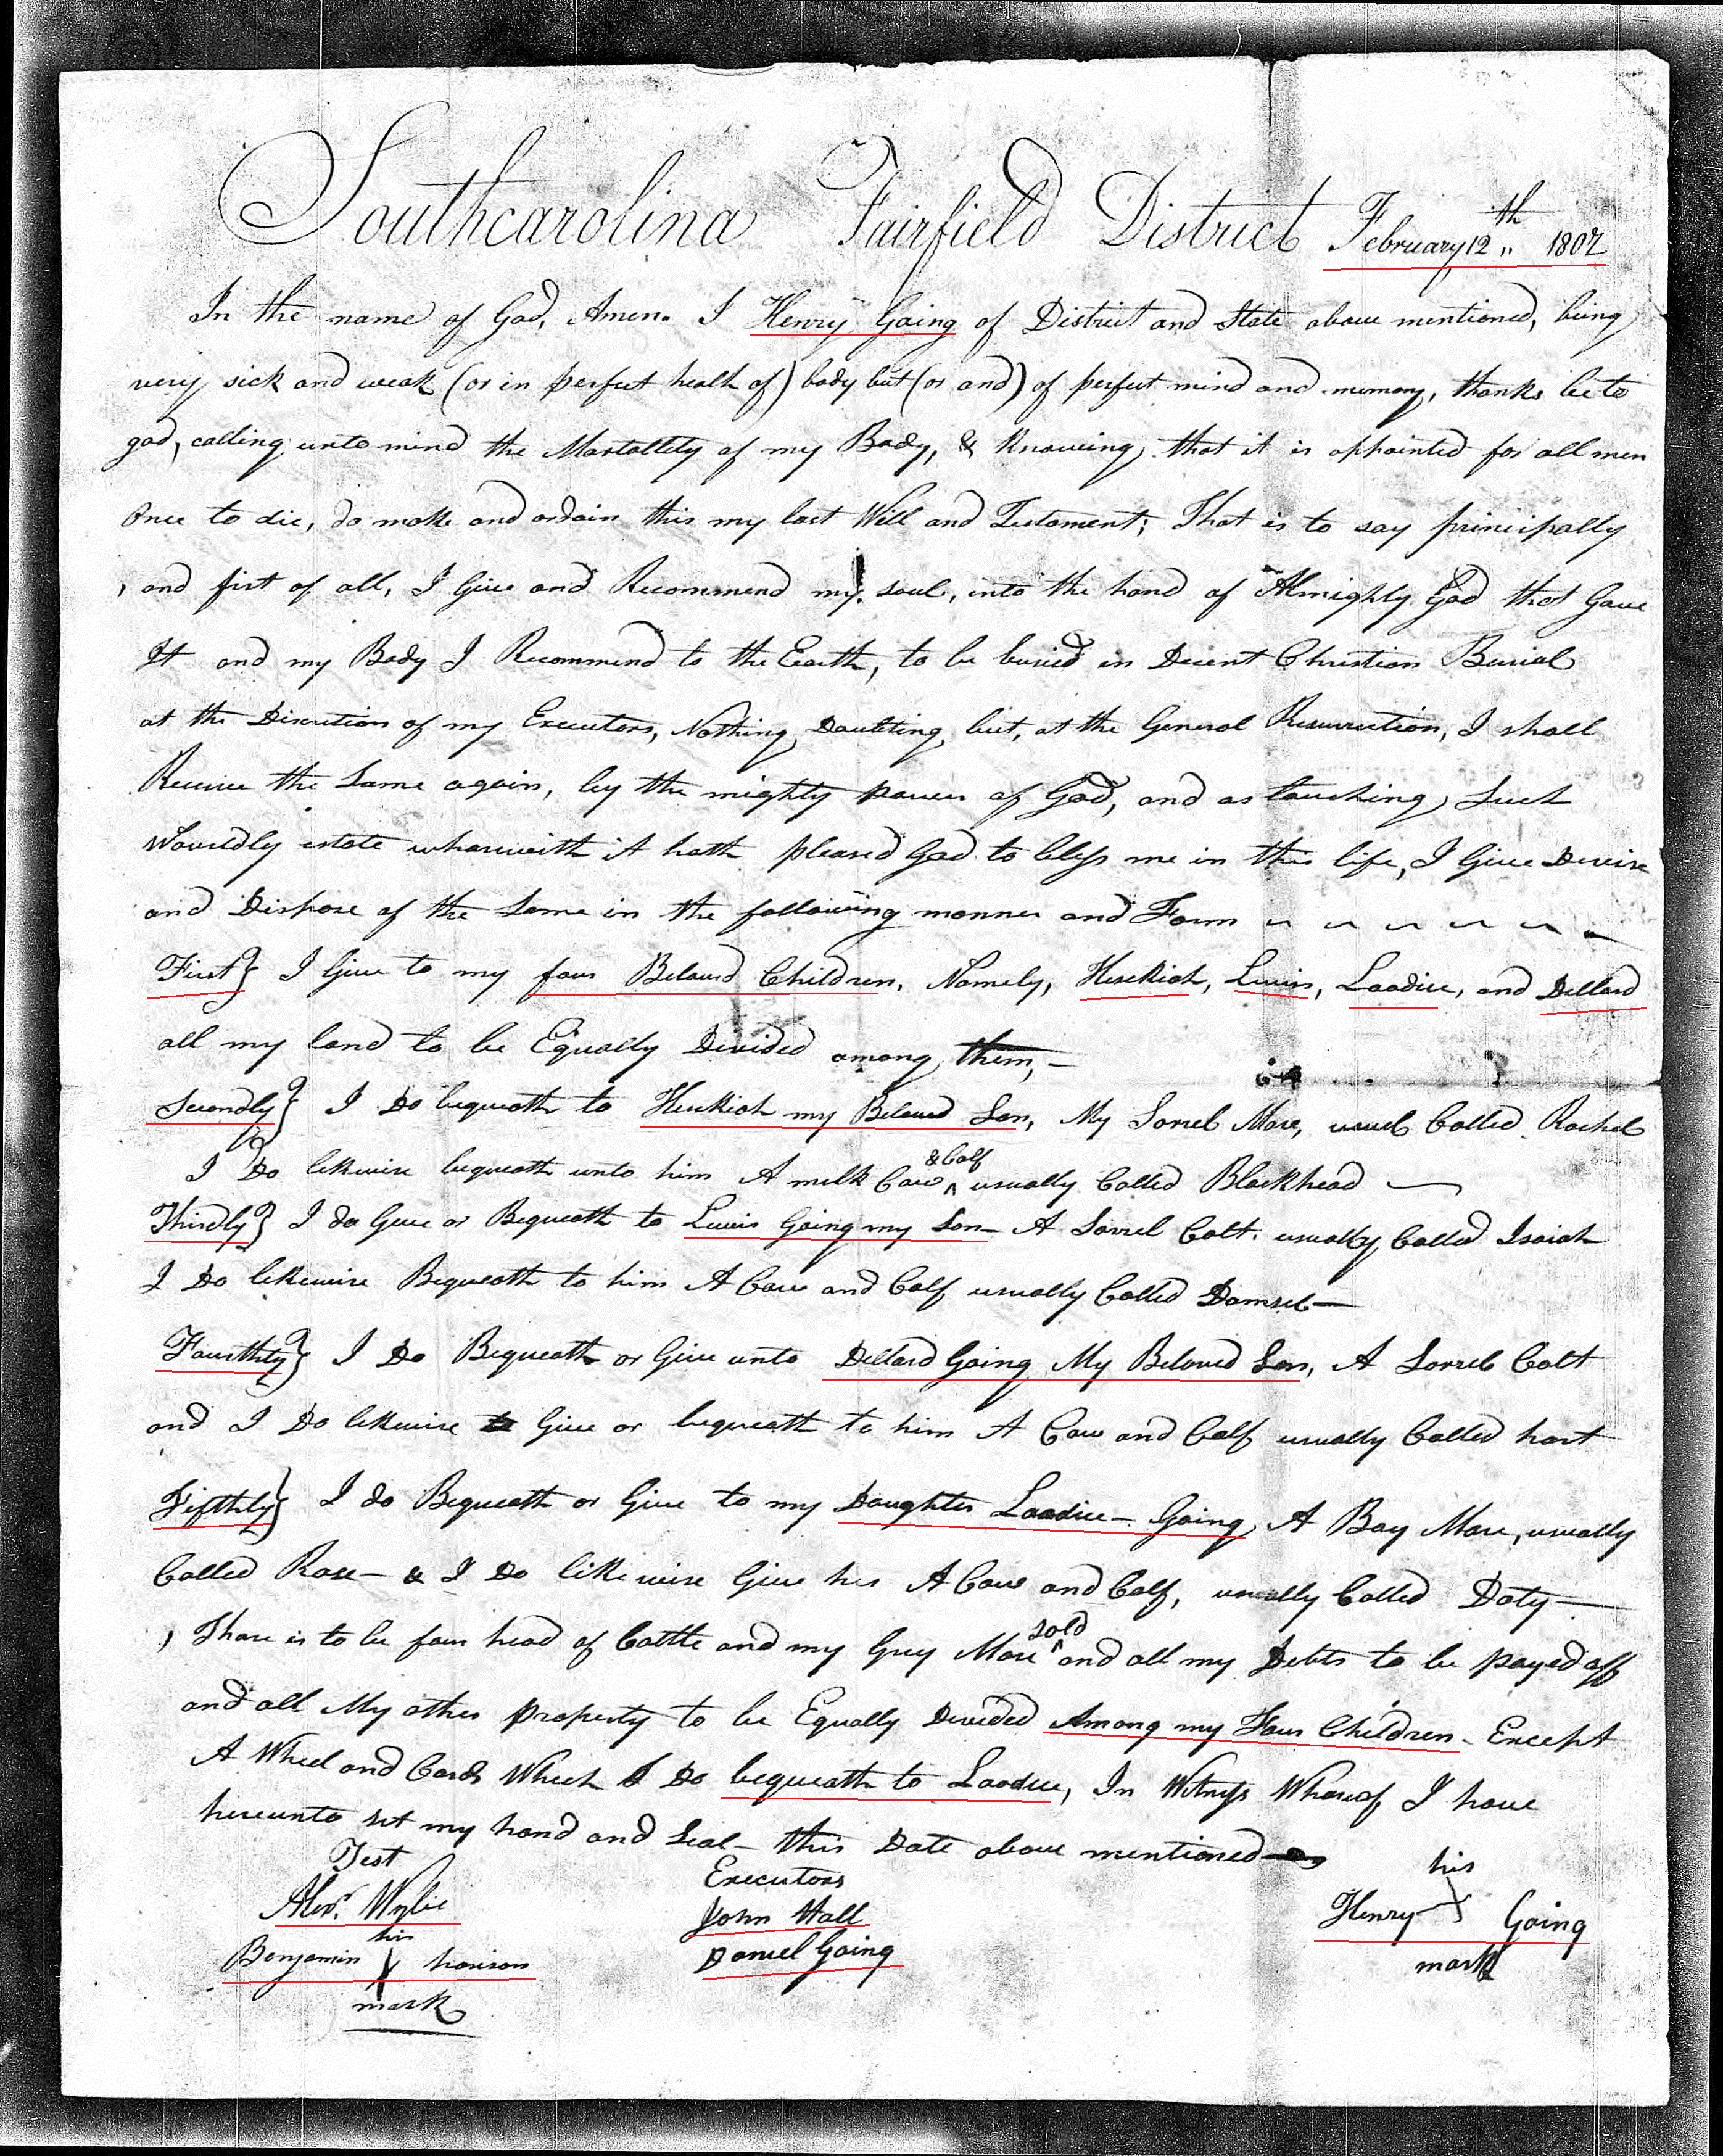 Southcarolina Fairfield District February 12th 1802
In the name of God, Amen. I Henry Going of District and State above mentioned, being
very sick and weak (or in perfect health of) body but (or and) of perfect mind and memory, thanks be to
god, calling unto mind the Mortallity of my Body, & Knowing that it is appointed for all men
Once to die, do make and ordain this my last Will and Testament; That is to say principally
, and first of all, I Give and Recommend my soul, into the hand of Almighty God that Gave
It and my Body I Recommend to the Earth, to be buried in Decent Christian Burial
at the Discretion of my Executors, Nothing Doubting but, at the General Resurrection, I shall
Receive the Same again, by the mighty power of God, and as touching Such
Wourldly estate wharewith it hath pleased God to bless me in this life, I Give Devise
and Dispose of the Same in the following manner and Form
First} I Give to my four Beloved Children, Namely, Hesekiah, Lewis, Laodice, and Dellard
all my land to be Equally Devided among them, -
Secondly} I Do bequeath to Hesekiah my Beloved Son, My Sorrel Mare, Called Rachel
I Do likewise bequeath unto him A milk Cow & Calf usually Called Blackhead
Thirdly} I do Give or Bequeath to Lewis Going my Son - A Sorrel Colt. usually Called Isaiah
I Do likewise Bequeath to him A Cow and Calf usually Called Damsel -
Fourthly} I Do Bequeath or Give unto Dellard Going My Beloved Son, A Sorrel Colt
and I Do likewise Give or bequeath to him A Cow and Calf usually Called hart
Fifthly} I do Bequeath or Give to my Daughter Laodice - Going A Bay Mare, usually
Called Rose - & I Do likewise Give her A Cow and Calf, usually Called Doty -
, Thare is to be four head of Cattle and my Grey Mare sold and all my Debts to be payed off
and all My other property to be Equally Devided Among my Four Children - Except
A Wheel and Cards Which I Do bequeath to Laodice, In Witness Whareof I have
hereunto set my hand and Seal - this Date above mentioned
Test
Executors
his
Alexr. Wylie
John Hall
Henry Going
his
Benjamin harison
Daniel Going
mark
mark